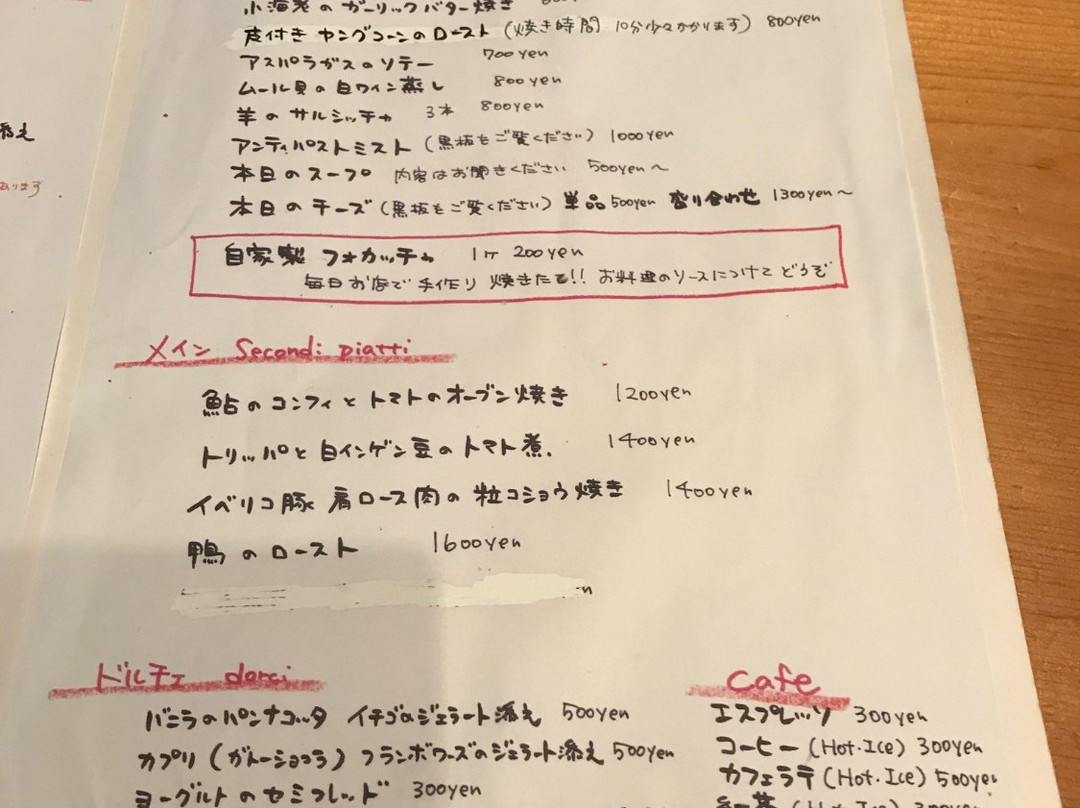 小海老のガーリックバター焼き
皮付き ヤングコーンのロースト (焼き時間 10分少々かかります) 800yen
アスパラガスのソテー 700yen
ムール貝の白ワイン蒸し 800yen
羊のサルシッチャ 3本 800yen
アンティパストミスト (黒板をご覧ください) 1000yen
本日のスープ 内容はお聞きください 500yen〜
本日のチーズ (黒板をご覧ください) 単品500yen 盛り合わせ 1300yen〜
自家製 フォカッチャ 1ヶ 200yen
毎日お店で手作り 焼きたて!! お料理のソースにつけて どうぞ
添え
あります
メイン Secondi piatti
鮎のコンフィとトマトのオーブン焼き 1200yen
トリッパと白インゲン豆のトマト煮. 1400yen
イベリコ豚 肩ロース肉の粒コショウ焼き 1400yen
鴨のロースト 1600yen
n
ドルチェ dorci
バニラのパンナコッタ イチゴのジェラート添え 500yen
カプリ (ガトーショコラ) フランボワーズのジェラート添え 500yen
ヨーグルトのセミフレッド 300yen
cafe
エスプレッソ 300yen
コーヒー (Hot・Ice) 300yen
カフェラテ (Hot・Ice) 500yen
紅茶 (Hot・Ice)